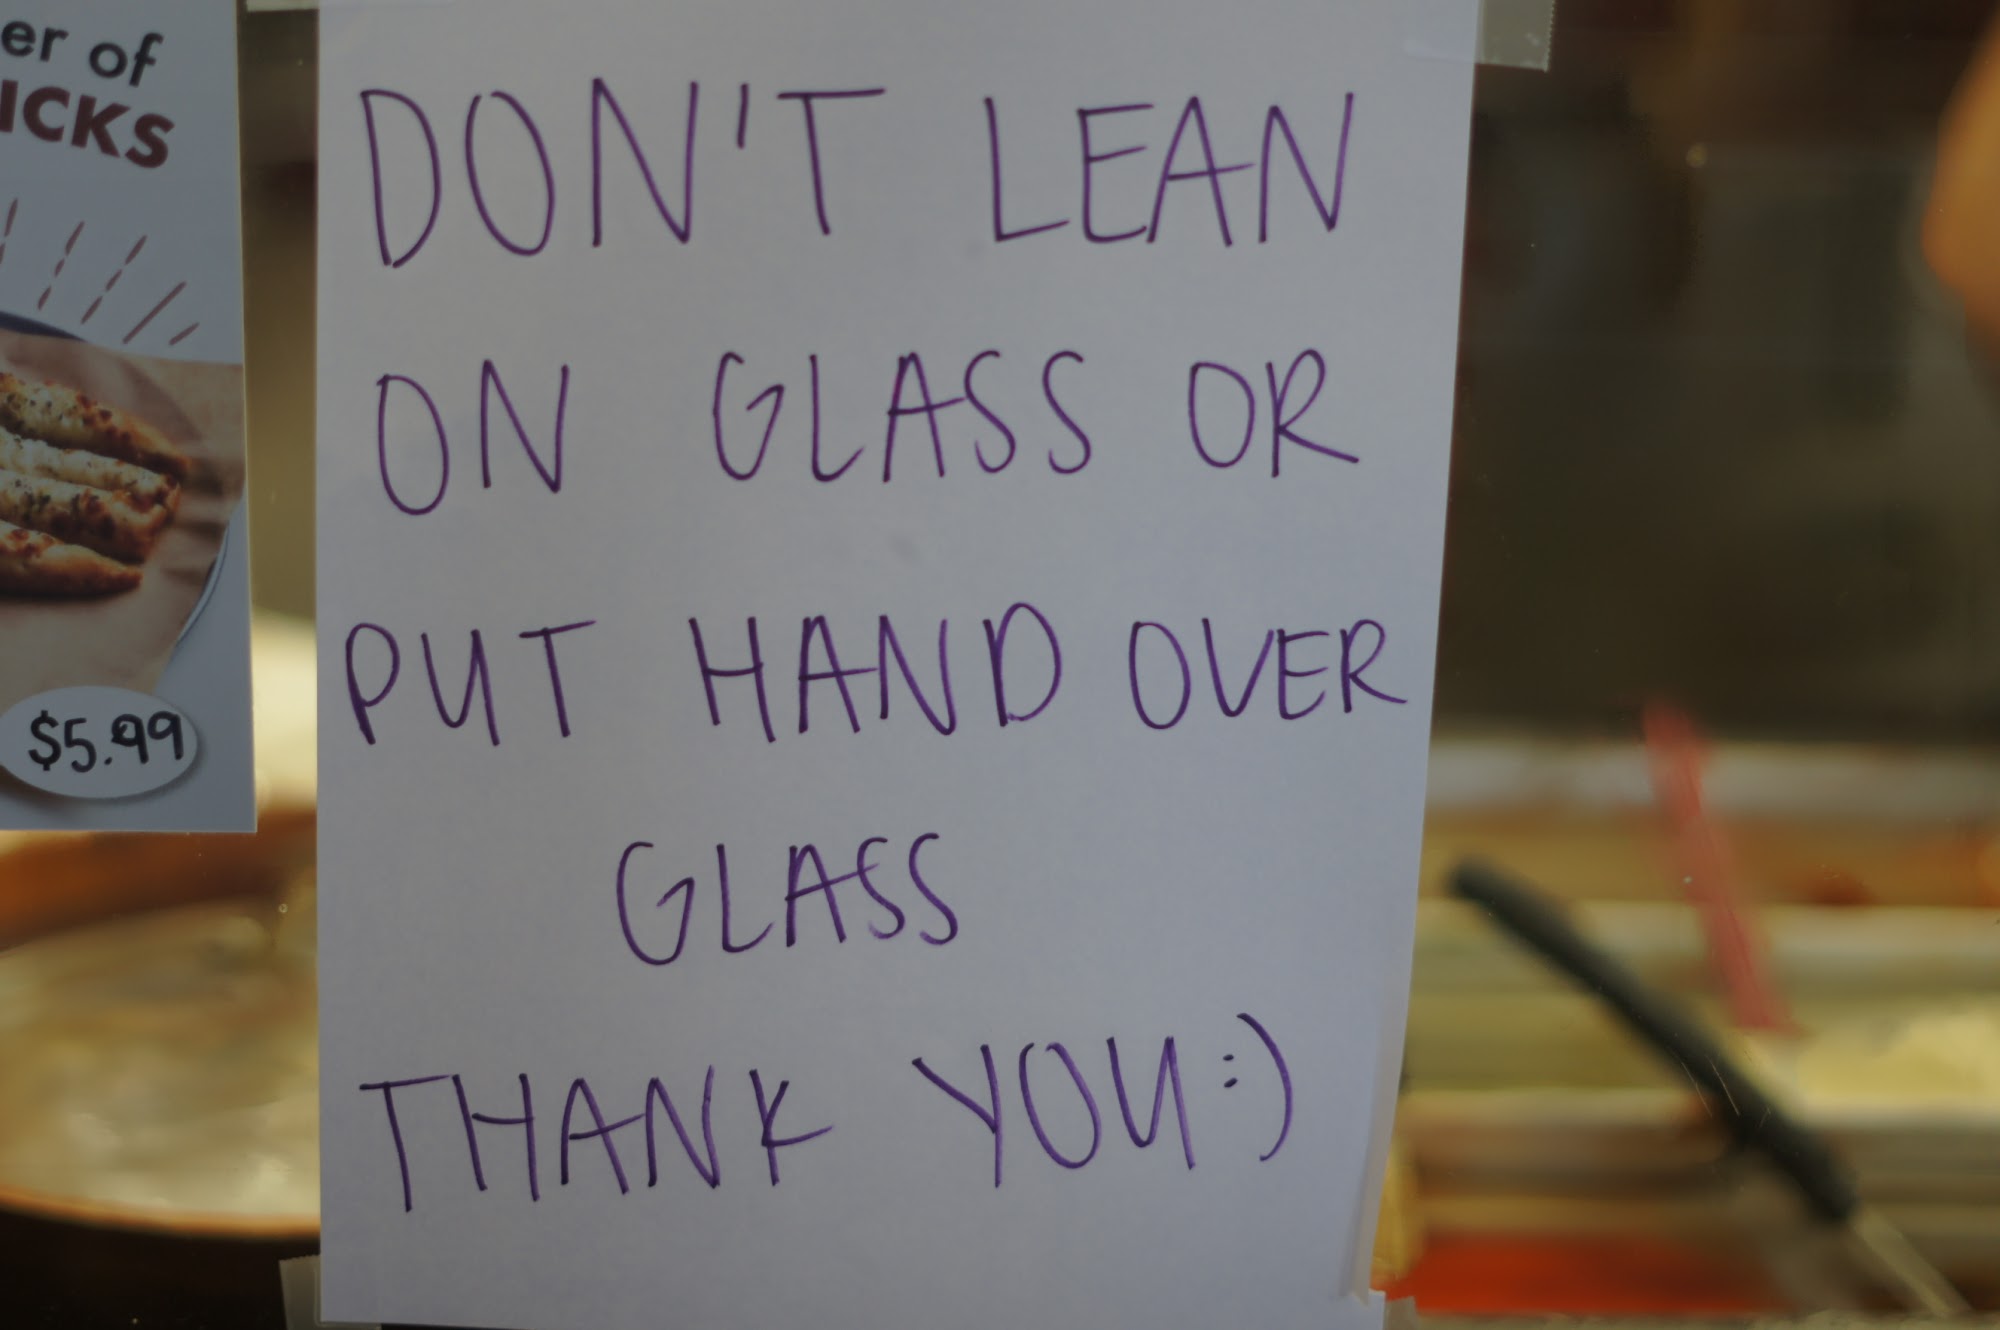 er of
ICKS
$5.99
DON'T LEAN
ON GLASS OR
PUT HAND OVER
GLASS
THANK YOU :)